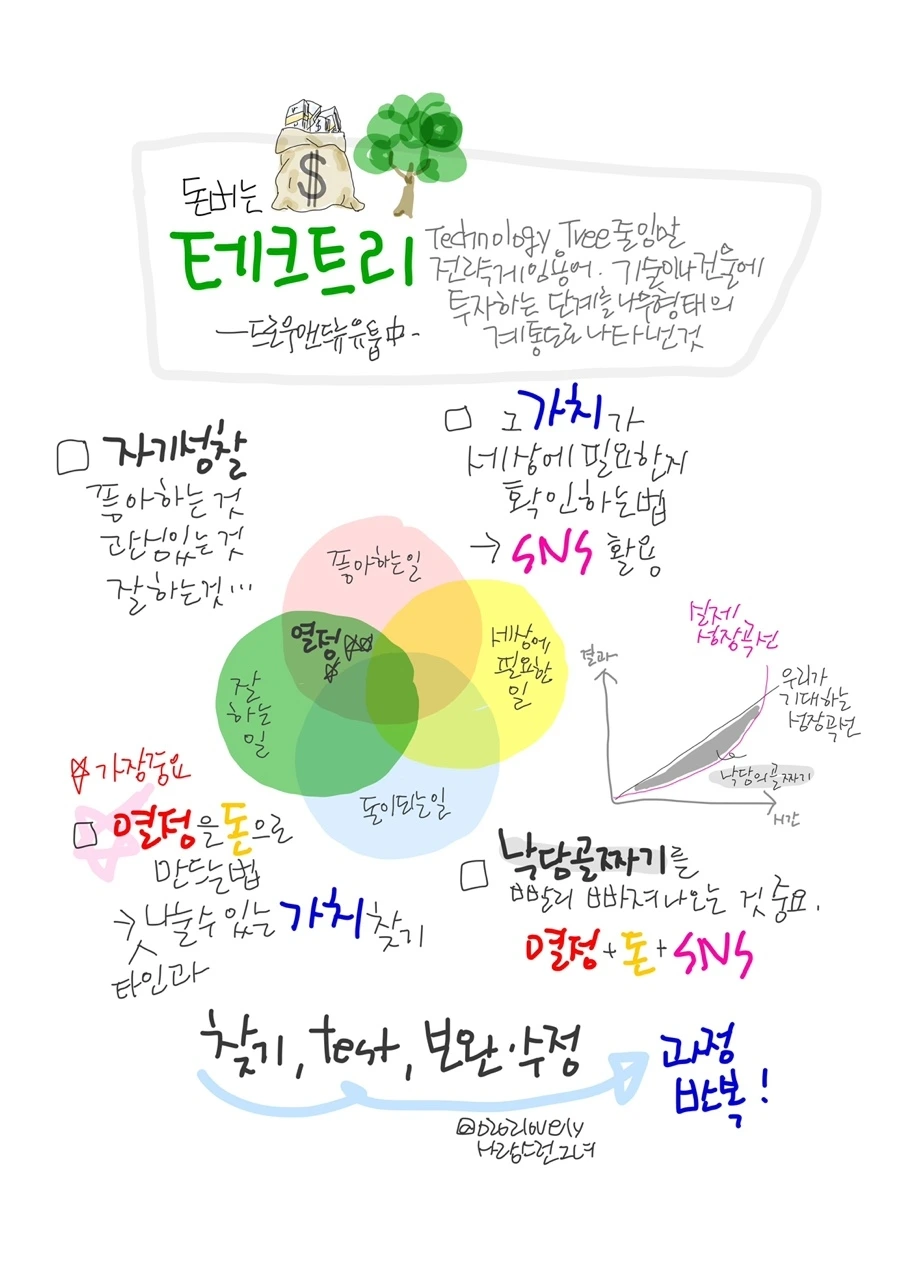 돈버는
$
테크트리
Technology Tree 줄임말
전략게임용어. 기술이나 건물에
투자하는 단계를 나무형태의
계통도로 나타낸것
-드로우앤드류 유튭中-
□ 자기성찰
좋아하는 것
관심있는 것
잘하는것...
□ 그 가치가
세상에 필요한지
확인하는법
→ SNS 활용
좋아하는일
열정
세상에
필요한
일
잘
하는
일
돈이되는일
실제
성장곡선
결과
우리가
기대하는
성장곡선
낙담의골짜기
시간
☆ 가장중요
□ 열정을 돈으로
만드는법
→ 나눌수 있는 가치 찾기
타인과
□ 낙담골짜기를
빨리 빠져나오는 것 중요.
열정 + 돈 + SNS
찾기, test, 보완·수정
과정
반복!
사랑스런그녀